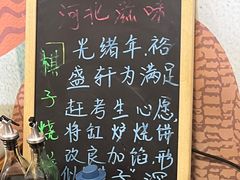 河北滋味
棋子烧
光绪年裕
盛轩为满足
赶考生心愿
将缸炉烧饼
改良加馅形
似
子深